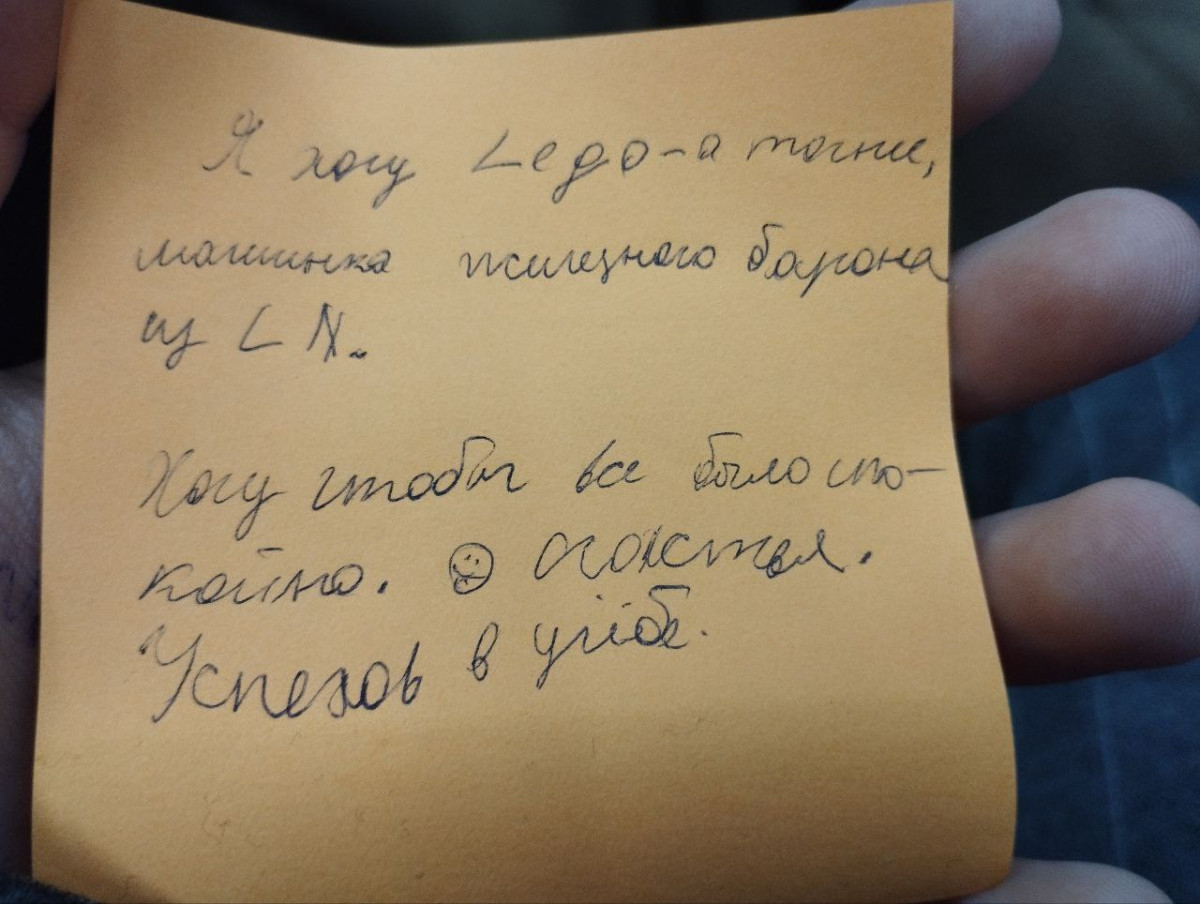 Я хочу Lego-а точние,
машинка жилезного барона
из LN.
Хочу чтобы все было спо-
койно. счастья.
Успехов в учёбе.